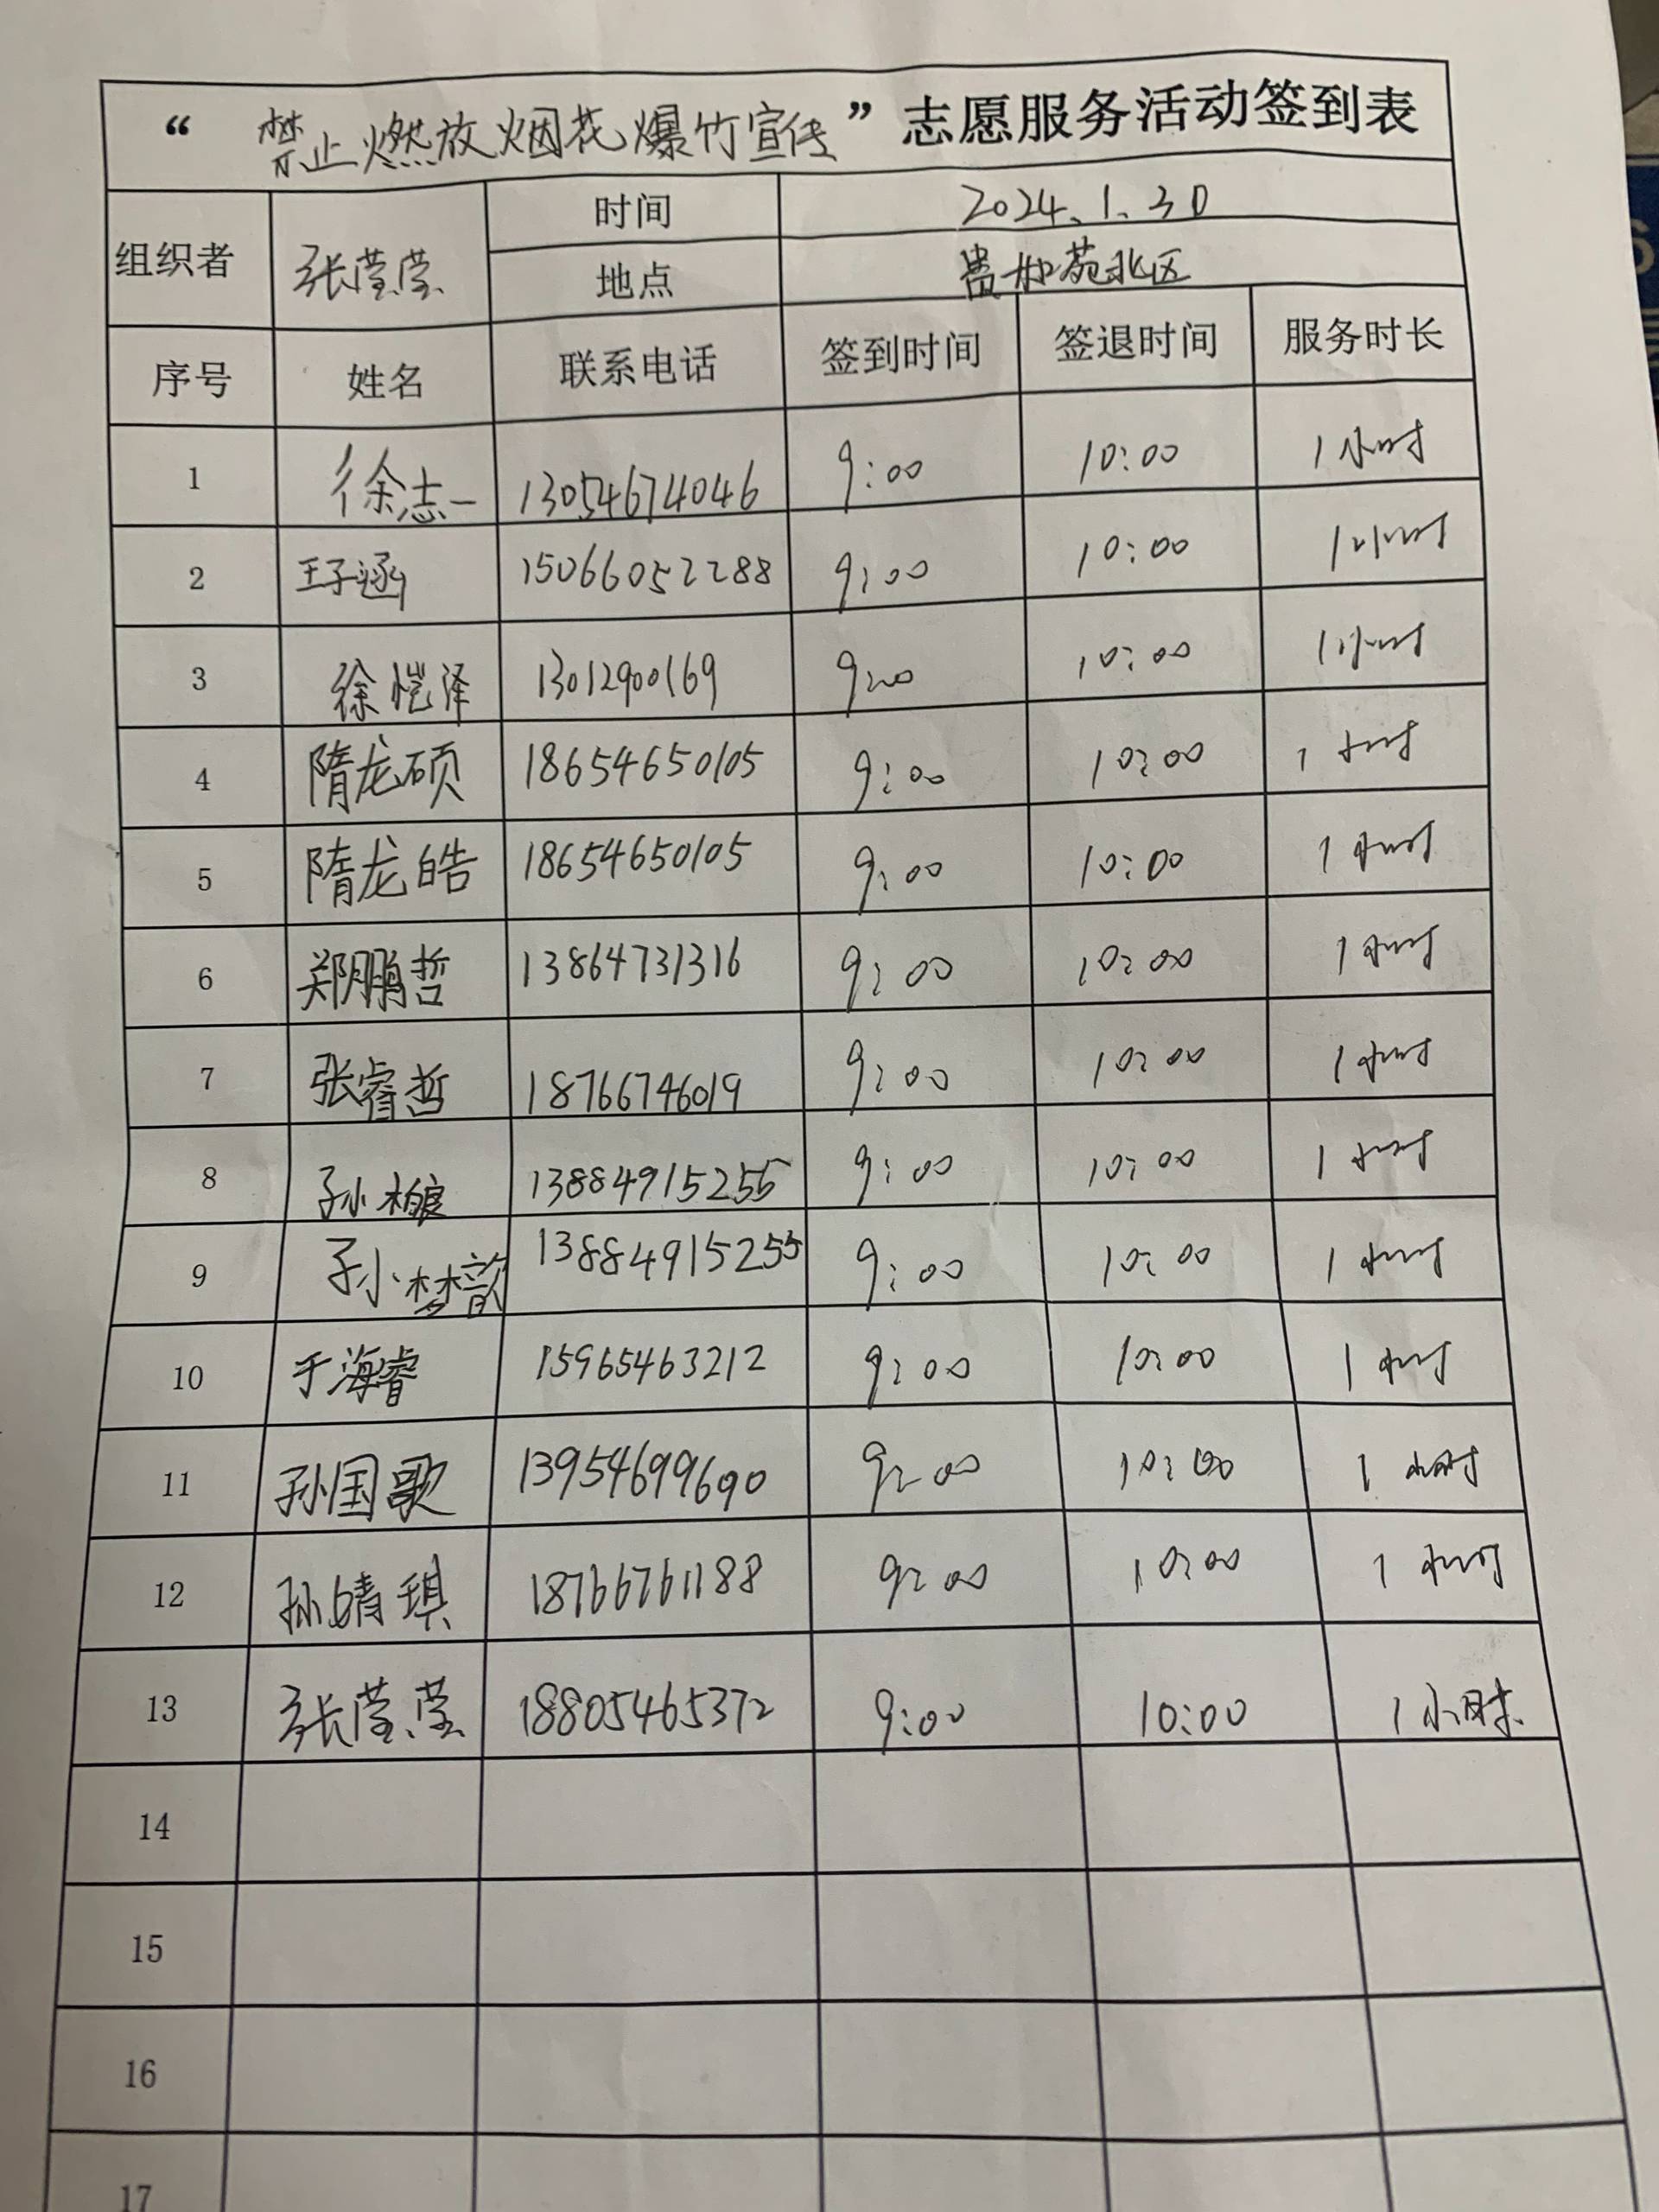 “ 禁止燃放烟花爆竹宣传 ” 志愿服务活动签到表
组织者 张莹莹 时间 2024.1.30
地点 苑北区
序号 姓名 联系电话 签到时间 签退时间 服务时长
1 徐志一 13054674046 9:00 10:00 1小时
2 王子涵 15066052288 9:00 10:00 1小时
3 徐恺泽 13012900169 9:00 10:00 1小时
4 隋龙硕 18654650105 9:00 10:00 1小时
5 隋龙皓 18654650105 9:00 10:00 1小时
6 郑鹏哲 13864731316 9:00 10:00 1小时
7 张睿哲 18766746019 9:00 10:00 1小时
8 孙 13884915255 9:00 10:00 1小时
9 孙梦韵 13884915255 9:00 10:00 1小时
10 于海睿 15965463212 9:00 10:00 1小时
11 孙国歌 13954699690 9:00 10:00 1小时
12 孙婧琪 18766761188 9:00 10:00 1小时
13 张莹莹 18805465372 9:00 10:00 1小时
14
15
16
17